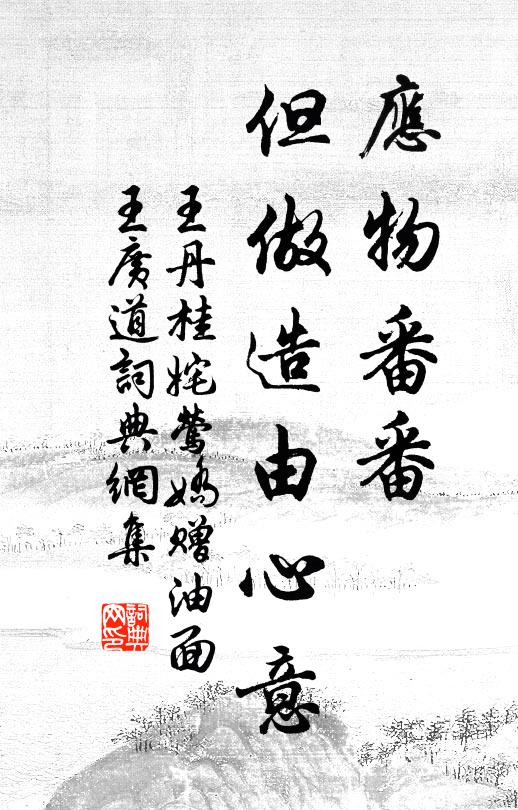 應物番番
但做造由心意
王丹桂姹鶯嬌贈油面
王廣道詞典網集
詞典
网印